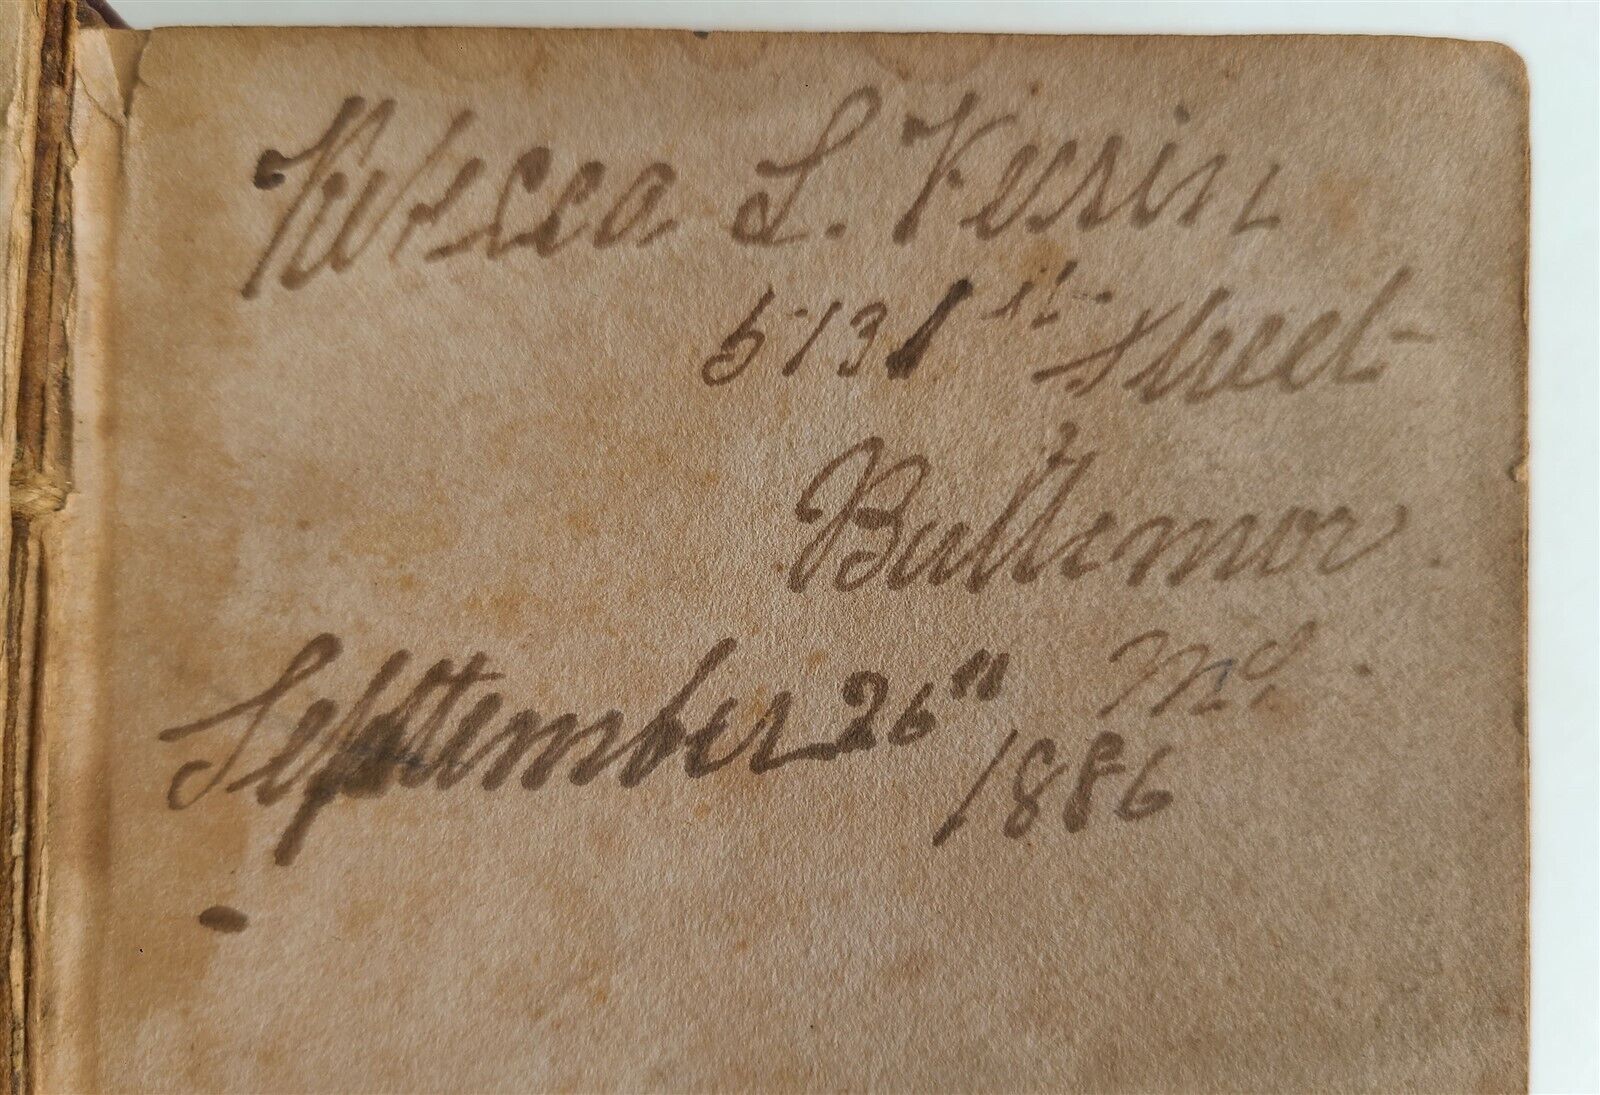 Rebecca L. Kusin
5731st Street
Baltimor
Md.
September 26"
1886